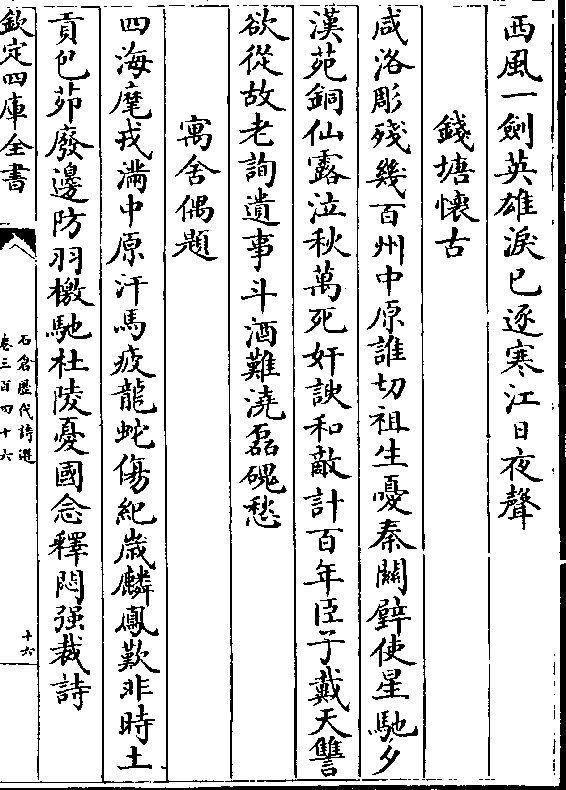 西風一劍英雄淚已逐寒江日夜聲
錢塘懷古
咸洛彫殘幾百州中原誰切祖生憂秦關璧使星馳夕
漢苑銅仙露泣秋萬死奸諛和敵計百年臣子戴天讐
欲從故老詢遺事斗酒難澆磊磈愁
寓舍偶題
四海麾戎滿中原汗馬疲龍蛇傷紀歲麟鳳歎非時土
貢包茆廢邊防羽檄馳杜陵憂國念釋悶强裁詩
欽定四庫全書
石倉歷代詩選
卷三百四十六
十六